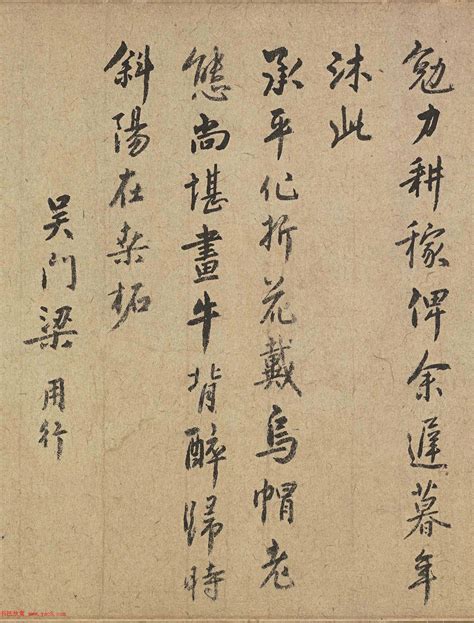 勉力耕稼俾余遲暮年
沐此
承平化折花戴烏帽老
態尚堪畫牛背醉歸時
斜陽在桑柘
吳門梁用行
www.yac8.com